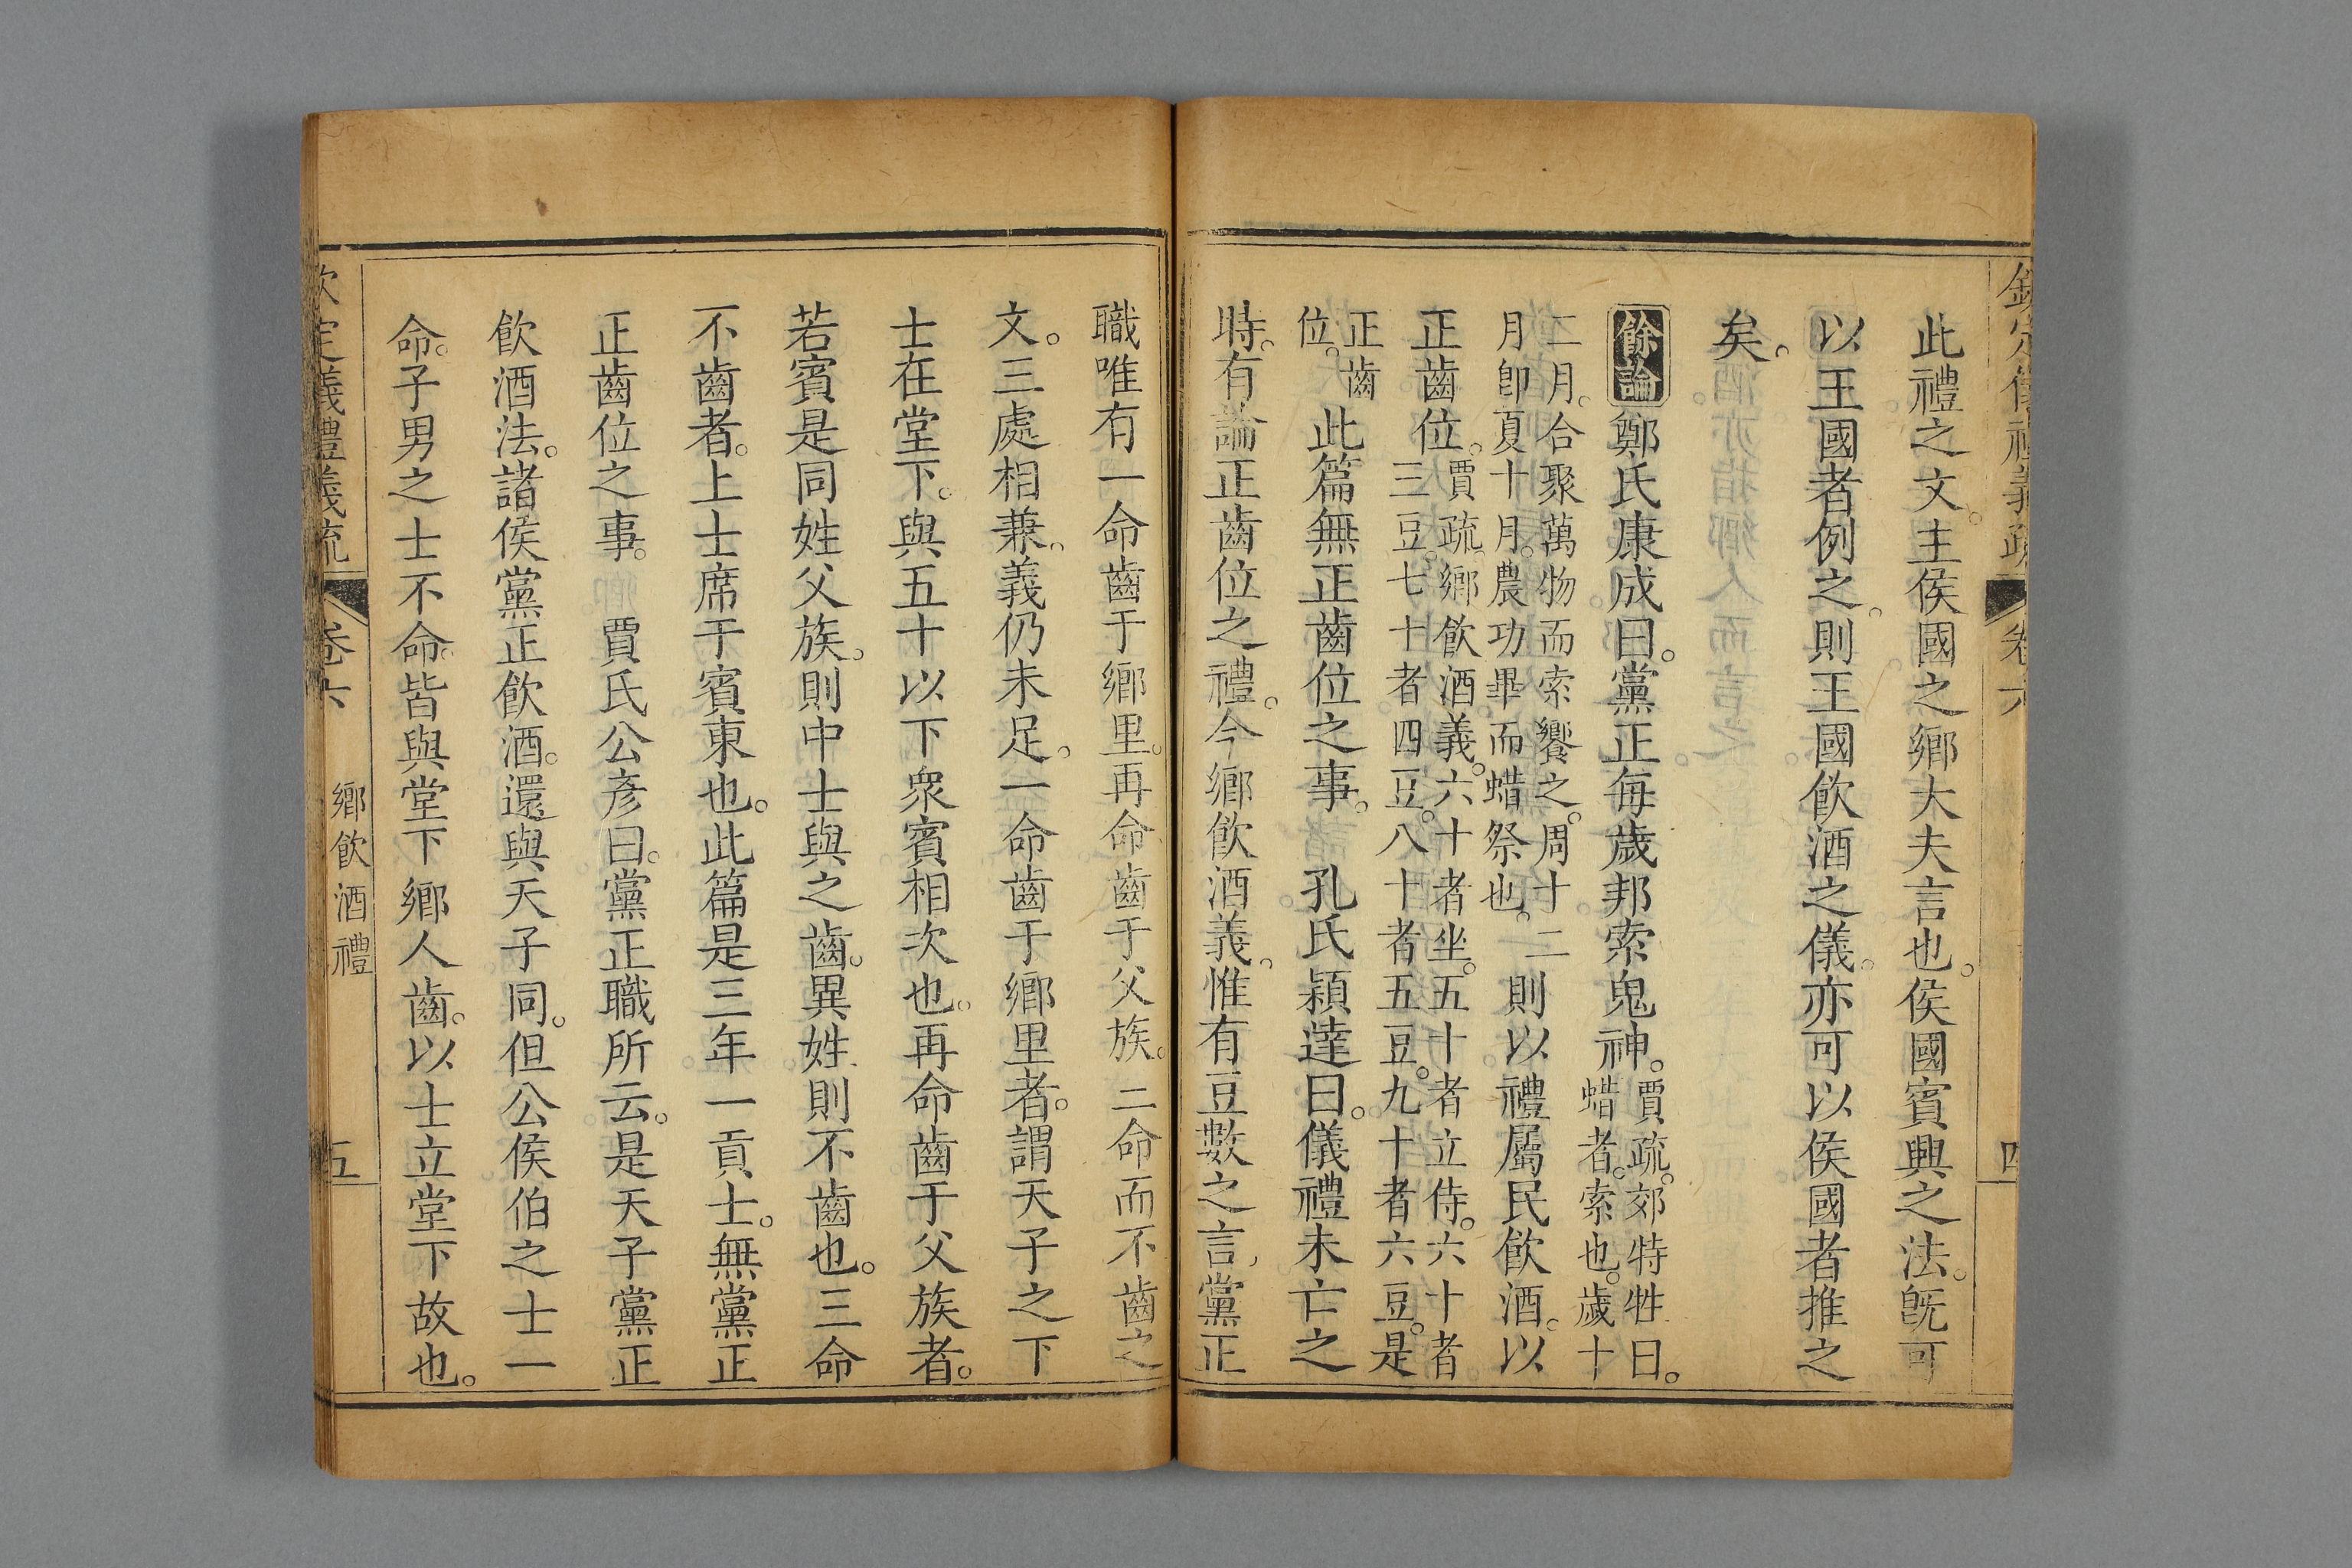 欽定儀禮義疏 卷六 四
此禮之文。主侯國之鄉大夫言也。侯國賓興之法。旣可
以王國者例之。則王國飲酒之儀。亦可以侯國者推之
矣。
餘論 鄭氏康成曰。黨正每歲邦索鬼神。賈疏。郊特牲曰。蜡者。索也。歲十
二月。合聚萬物而索饗之。周十二月卽夏十月。農功畢而蜡祭也。則以禮屬民飲酒。以
正齒位。賈疏。鄉飲酒義。六十者坐。五十者立侍。六十者三豆。七十者四豆。八十者五豆。九十者六豆。是
正齒位。此篇無正齒位之事。 孔氏穎達曰。儀禮未亡之
時。有論正齒位之禮。今鄉飲酒義。惟有豆數之言。黨正
職唯有一命齒于鄉里。再命齒于父族。三命而不齒之
文。三處相兼。義仍未足。一命齒于鄉里者。謂天子之下
士在堂下。與五十以下衆賓相次也。再命齒于父族者。
若賓是同姓父族。則中士與之齒。異姓則不齒也。三命
不齒者。上士席于賓東也。此篇是三年一貢士。無黨正
正齒位之事。 賈氏公彥曰。黨正職所云。是天子黨正
飲酒法。諸侯黨正飲酒。還與天子同。但公侯伯之士一
命。子男之士不命。皆與堂下鄉人齒。以士立堂下故也。
欽定儀禮義疏 卷六 鄉飲酒禮 五